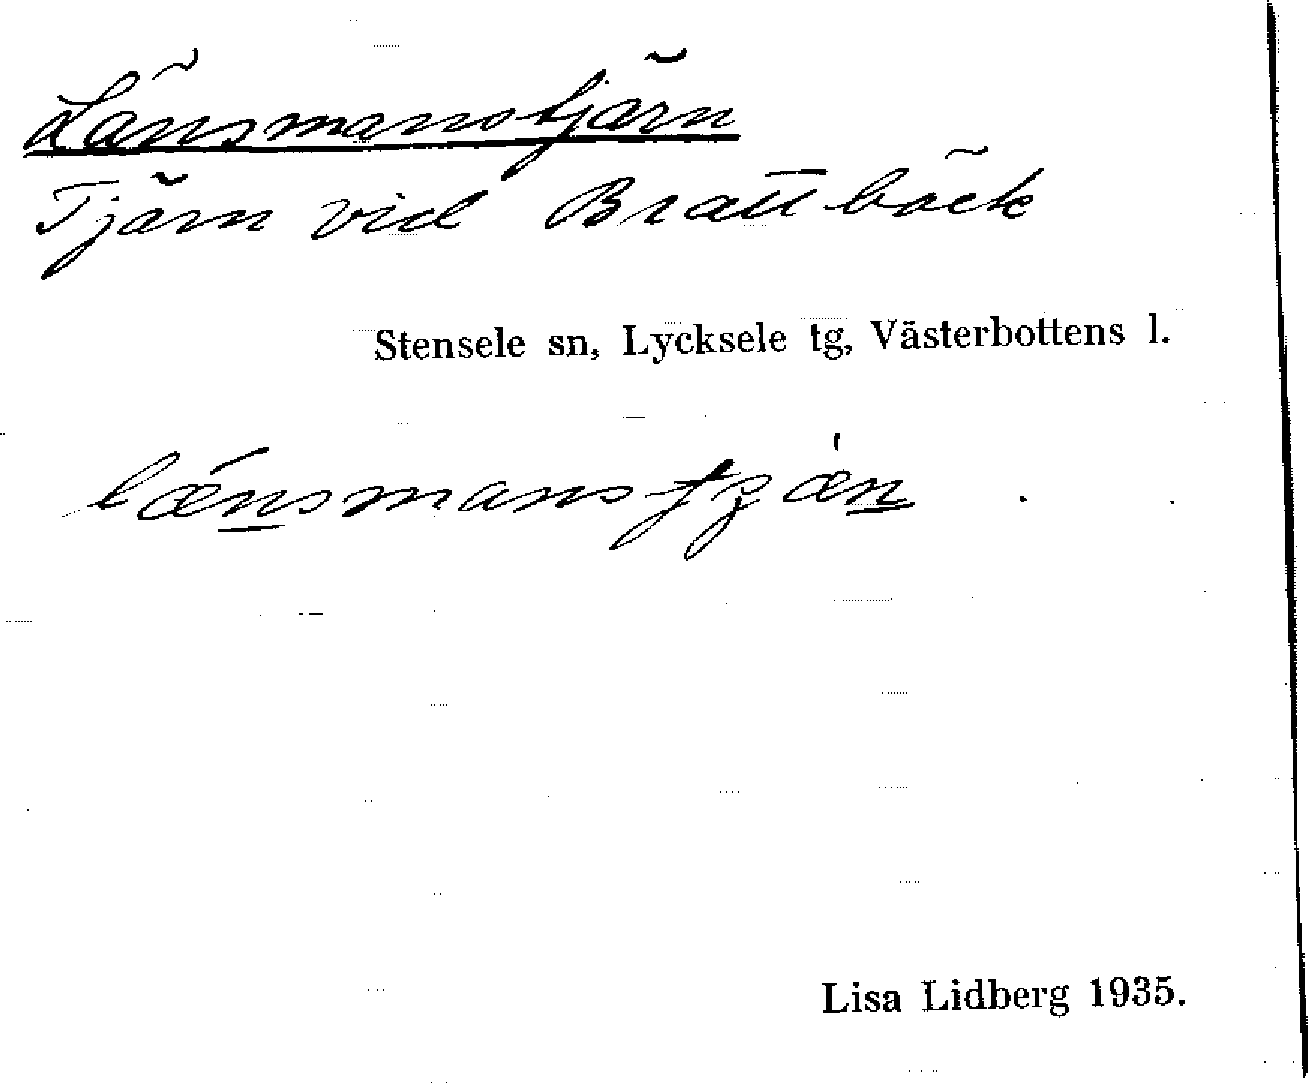 Länsmanstjärn
Tjärn vid Brattbäck
Stensele sn, Lycksele tg, Västerbottens l.
Lisa Lidberg 1935.